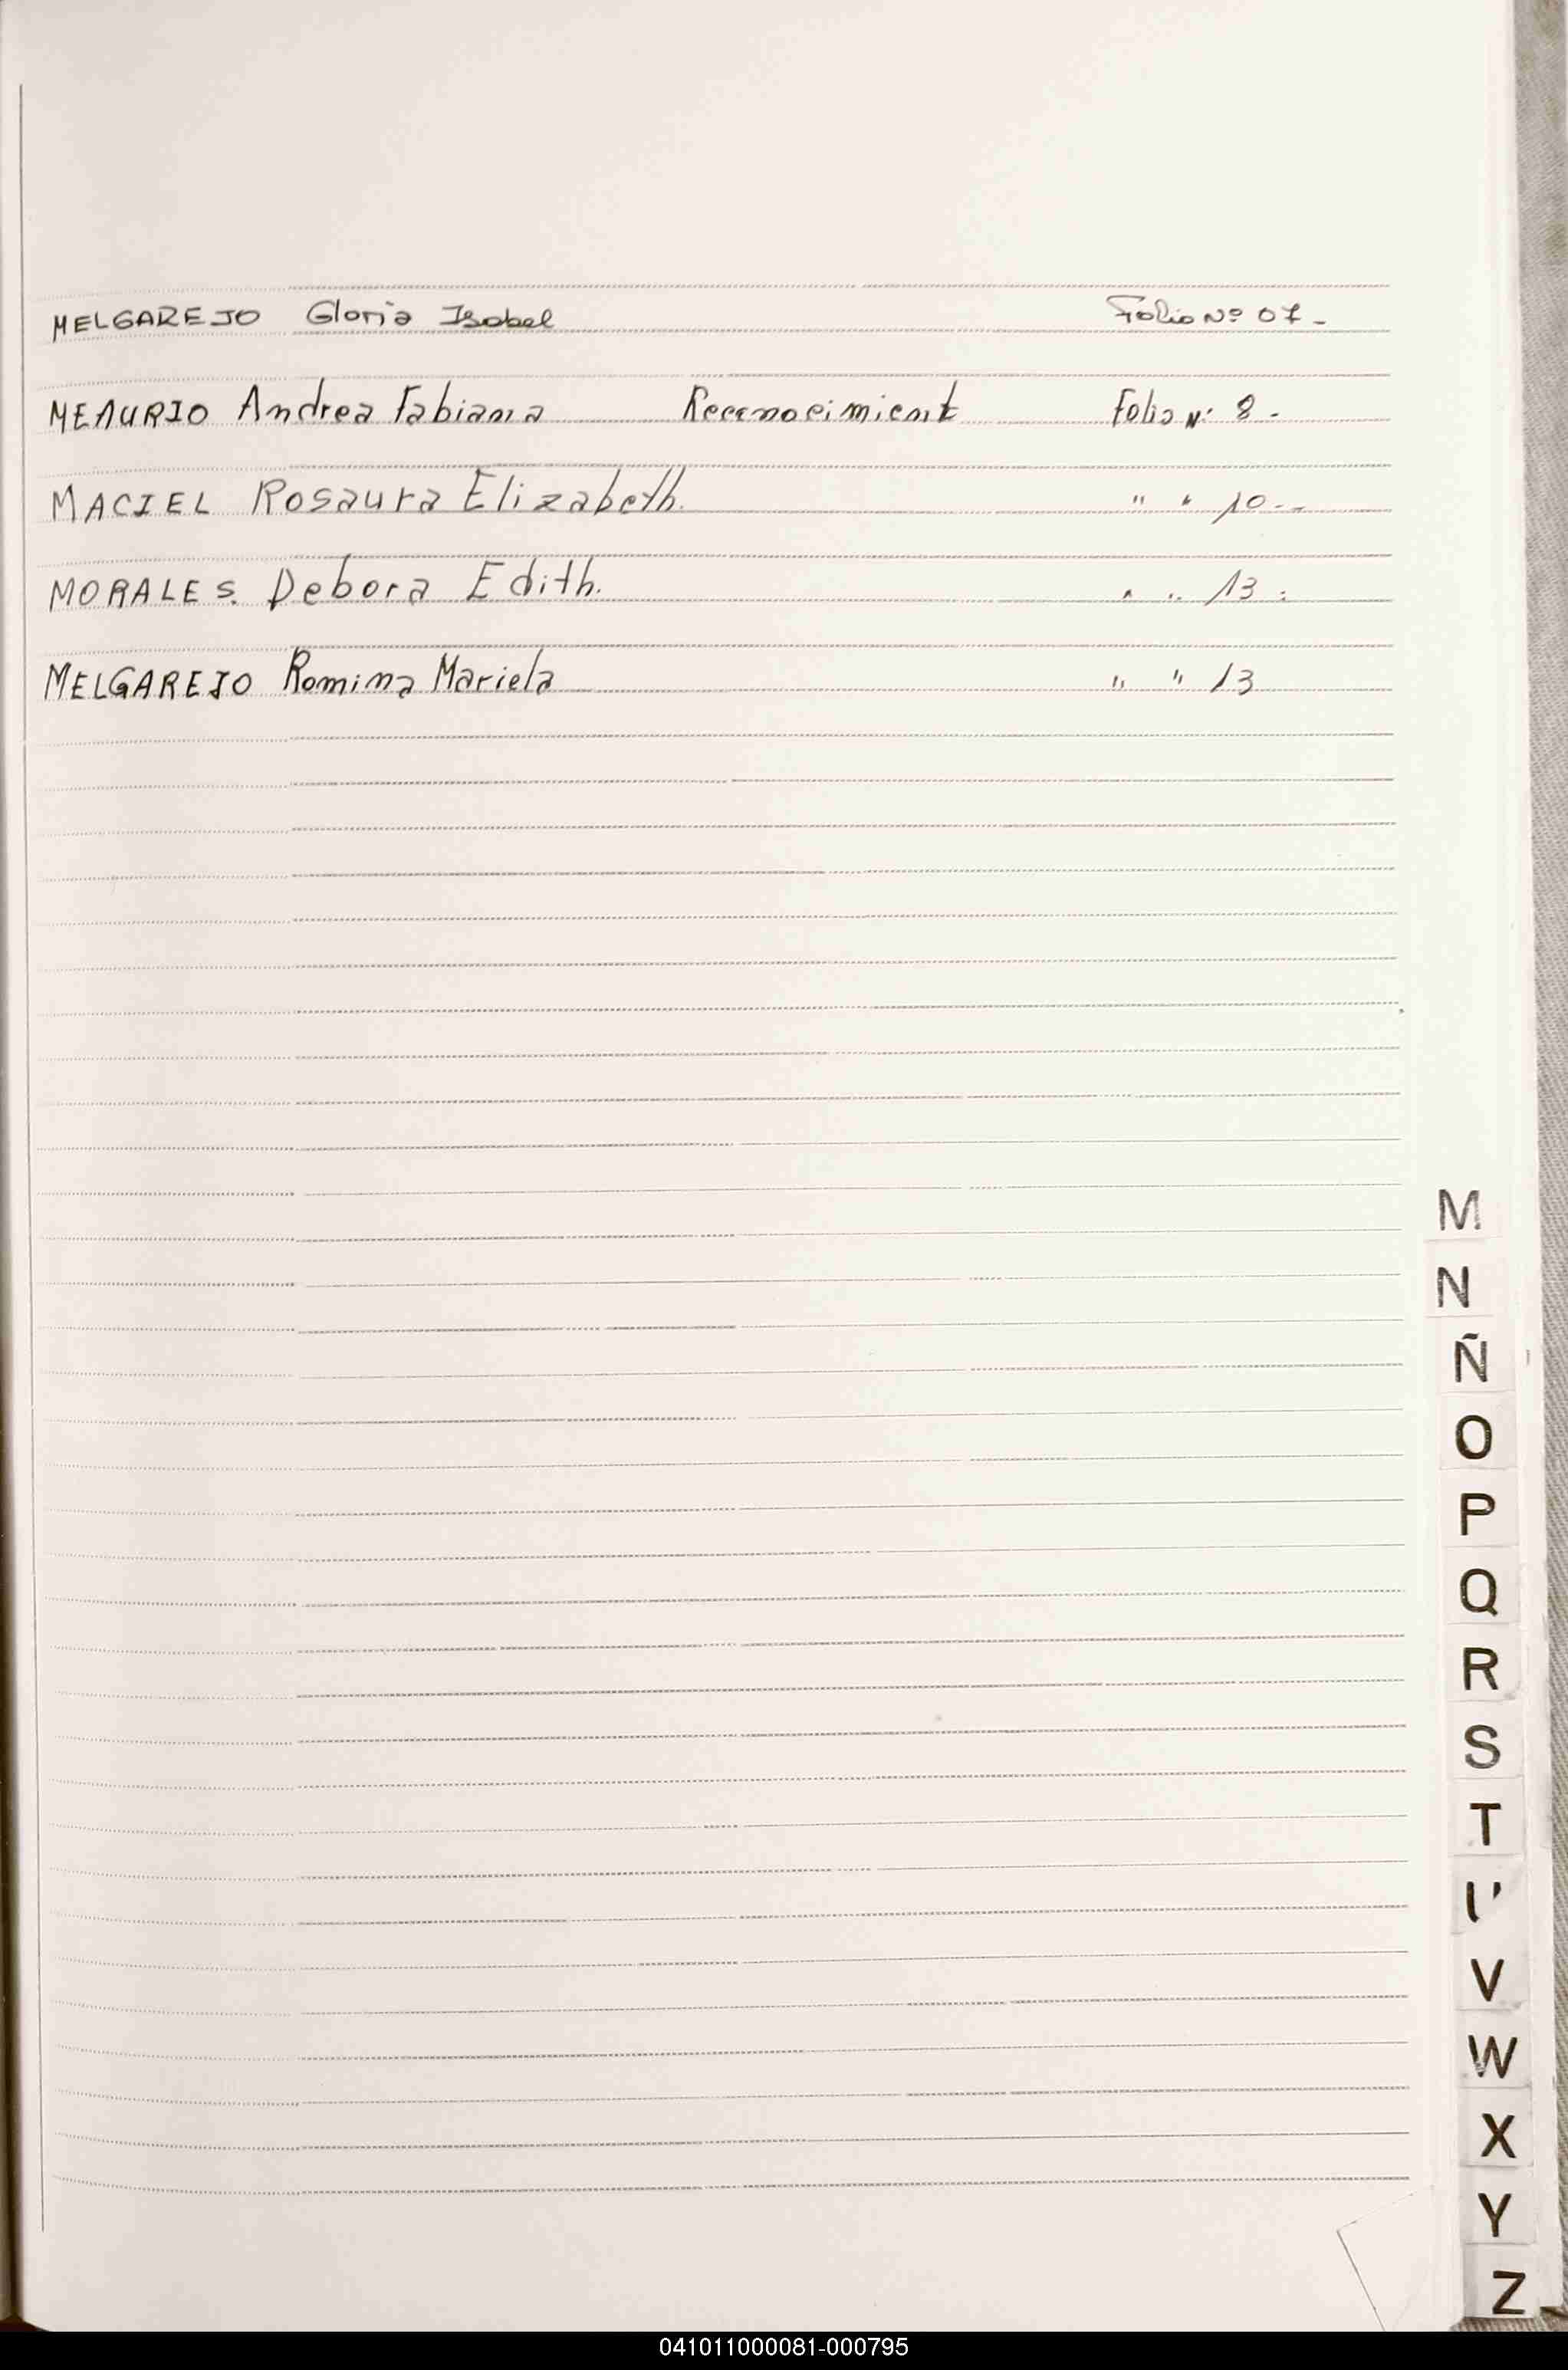 MELGAREJO Gloria Isabel Folio Nº 07 -
MEAURIO Andrea Fabiana Reconocimient Folio Nº 8 -
MACIEL Rosaura Elizabeth. " " 10 --
MORALES. Debora Edith. " " 13 :
MELGAREJO Romina Mariela " " 13
M
N
Ñ
O
P
Q
R
S
T
U
V
W
X
Y
Z
041011000081-000795